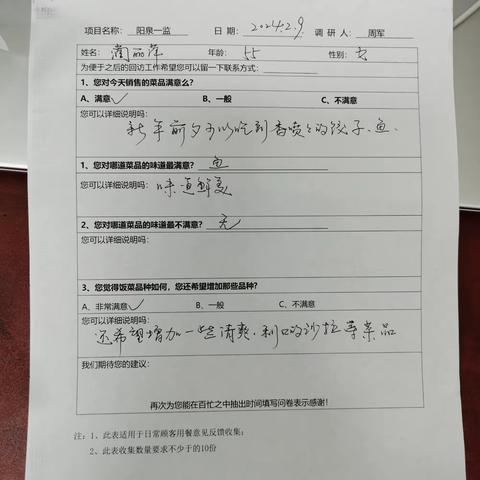 项目名称： 阳泉一监 日 期： 2024.2.9. 调 研 人： 周军
姓名： 丽萍 年龄： 55 性别： 女
为便于之后的回访工作希望您可以留一下联系方式：
1、您对今天销售的菜品满意么？
A、满意✓ B、一般 C、不满意
您可以详细说明吗：
新年前夕可以吃到香喷喷的饺子、鱼.
1、您对哪道菜品的味道最满意？ 鱼
您可以详细说明吗： 味道鲜美
2、您对哪道菜品的味道最不满意？ 无
您可以详细说明吗：
3、您觉得饭菜品种如何，您还希望增加那些品种？
A、非常满意✓ B、一般 C、不满意
您可以详细说明吗：
还希望增加一些清爽、利口的沙拉等菜品
我们期待您的建议：
再次为您能在百忙之中抽出时间填写问卷表示感谢！
注：1、此表适用于日常顾客用餐意见反馈收集；
2、此表收集数量要求不少于的10份